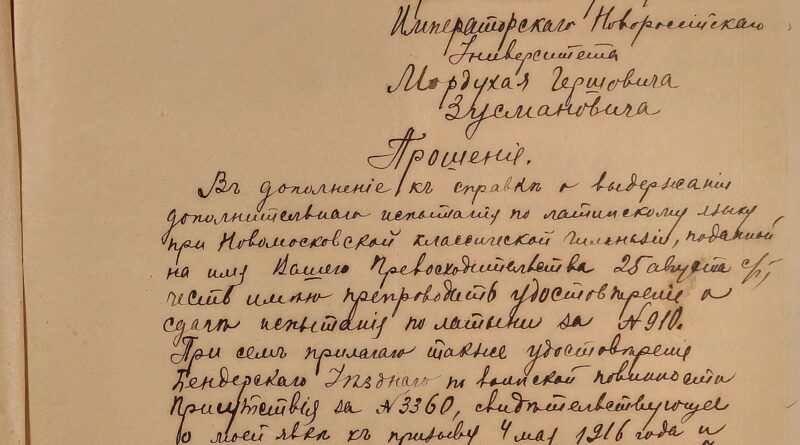 Императорскаго Новороссійскаго
Университета
Мордухая Гершовича
Зусмановича
Прошеніе.
Въ дополненіе къ справкѣ о выдержаніи
дополнительнаго испытанія по латинскому языку
при Новомосковской классической гимназіи, поданной
на имя Вашего Превосходительства 25 августа с/г,
честь имѣю препроводить удостовѣреніе о
сдачѣ испытанія по латыни за №910.
При семъ прилагаю также удостовѣреніе
Бендерскаго Уѣзднаго по воинской повинности
Присутствія за №3360, свидѣтельствующее
о моей явкѣ къ призыву 4 мая 1916 года и